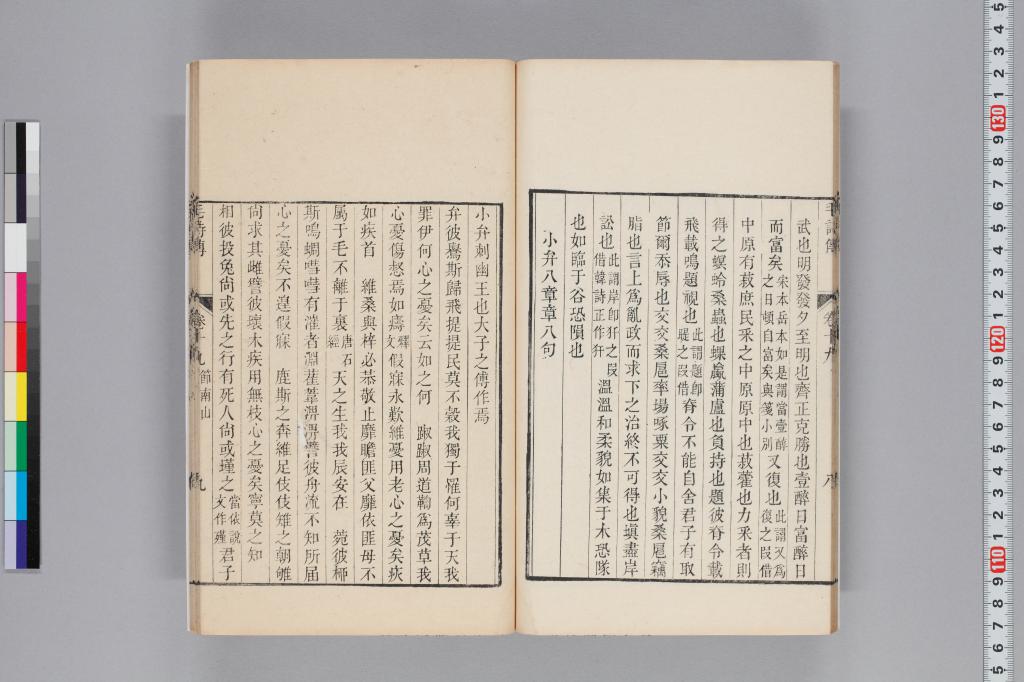 武也明發發夕至明也齊正克勝也壹醉日富醉日
而富矣宋本岳本如是謂當壹醉之日頓自富矣與箋小別又復也此謂又爲復之叚借
中原有菽庶民釆之中原原中也菽藿也力釆者則
得之螟蛉桑蟲也蜾蠃蒲盧也負持也題彼脊令載
飛載鳴題視也此謂題卽睼之叚借脊令不能自舍君子有取
節爾忝辱也交交桑扈率場啄粟交交小貌桑扈竊
脂也言上爲亂政而求下之治終不可得也塡盡岸
訟也此謂岸卽犴之叚借韓詩正作犴溫溫和柔貌如集于木恐隊
也如臨于谷恐隕也
小弁八章章八句
小弁刺幽王也大子之傅作焉
弁彼鸒斯歸飛提提民莫不穀我獨于罹何辜于天我
罪伊何心之憂矣云如之何　踧踧周道鞫爲茂草我
心憂傷惄焉如擣釋文假寐永歎維憂用老心之憂矣疢
如疾首　維桑與梓必恭敬止靡瞻匪父靡依匪母不
屬于毛不離于裏唐石經天之生我我辰安在　菀彼柳
斯鳴蜩嘒嘒有漼者淵萑葦淠淠譬彼舟流不知所屆
心之憂矣不遑假寐　鹿斯之奔維足伎伎雉之朝雊
尙求其雌譬彼壞木疾用無枝心之憂矣寧莫之知
相彼投兔尙或先之行有死人尙或墐之當依說文作殣君子
毛詩傳　卷十九　節南山　九